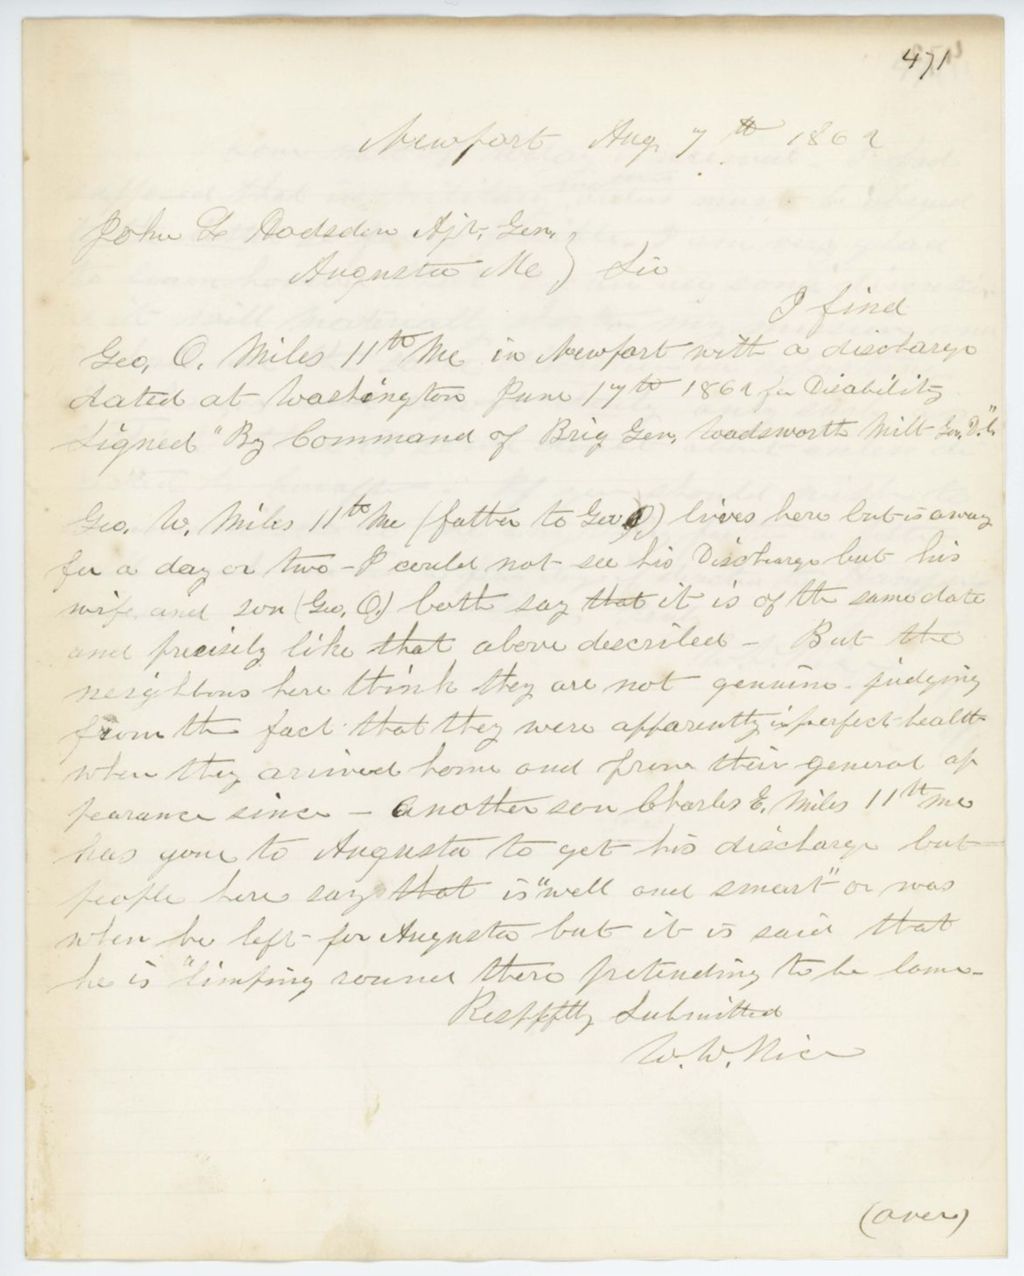 471
Newport Aug 7th 1862
John L Hodsdon Ajt. Gen.
Augusta Me } Sir
I find
Geo. O. Miles 11th Me in Newport with a discharge
dated at Washington June 17th 1862 for Disability
Signed "By Command of Brig Gen. Wadsworth Milt Gov. D.C."
Geo. W. Miles 11th Me (father to Geo O) lives here but is away
for a day or two - I could not see his Discharge but his
wife and son (Geo. O.) both say that it is of the same date
and precisely like that above described - But the
neighbors here think they are not genuine - judging
from the fact that they were apparently in perfect health
when they arrived home and from their general ap
pearance since - Another son Charles E. Miles 11th Me
has gone to Augusta to get his discharge but
people here say that is "well and smart" or was
when he left for Augusta but it is said that
he is "limping round there pretending to be lame -
Respffly Submitted
W. W. Nice
(over)